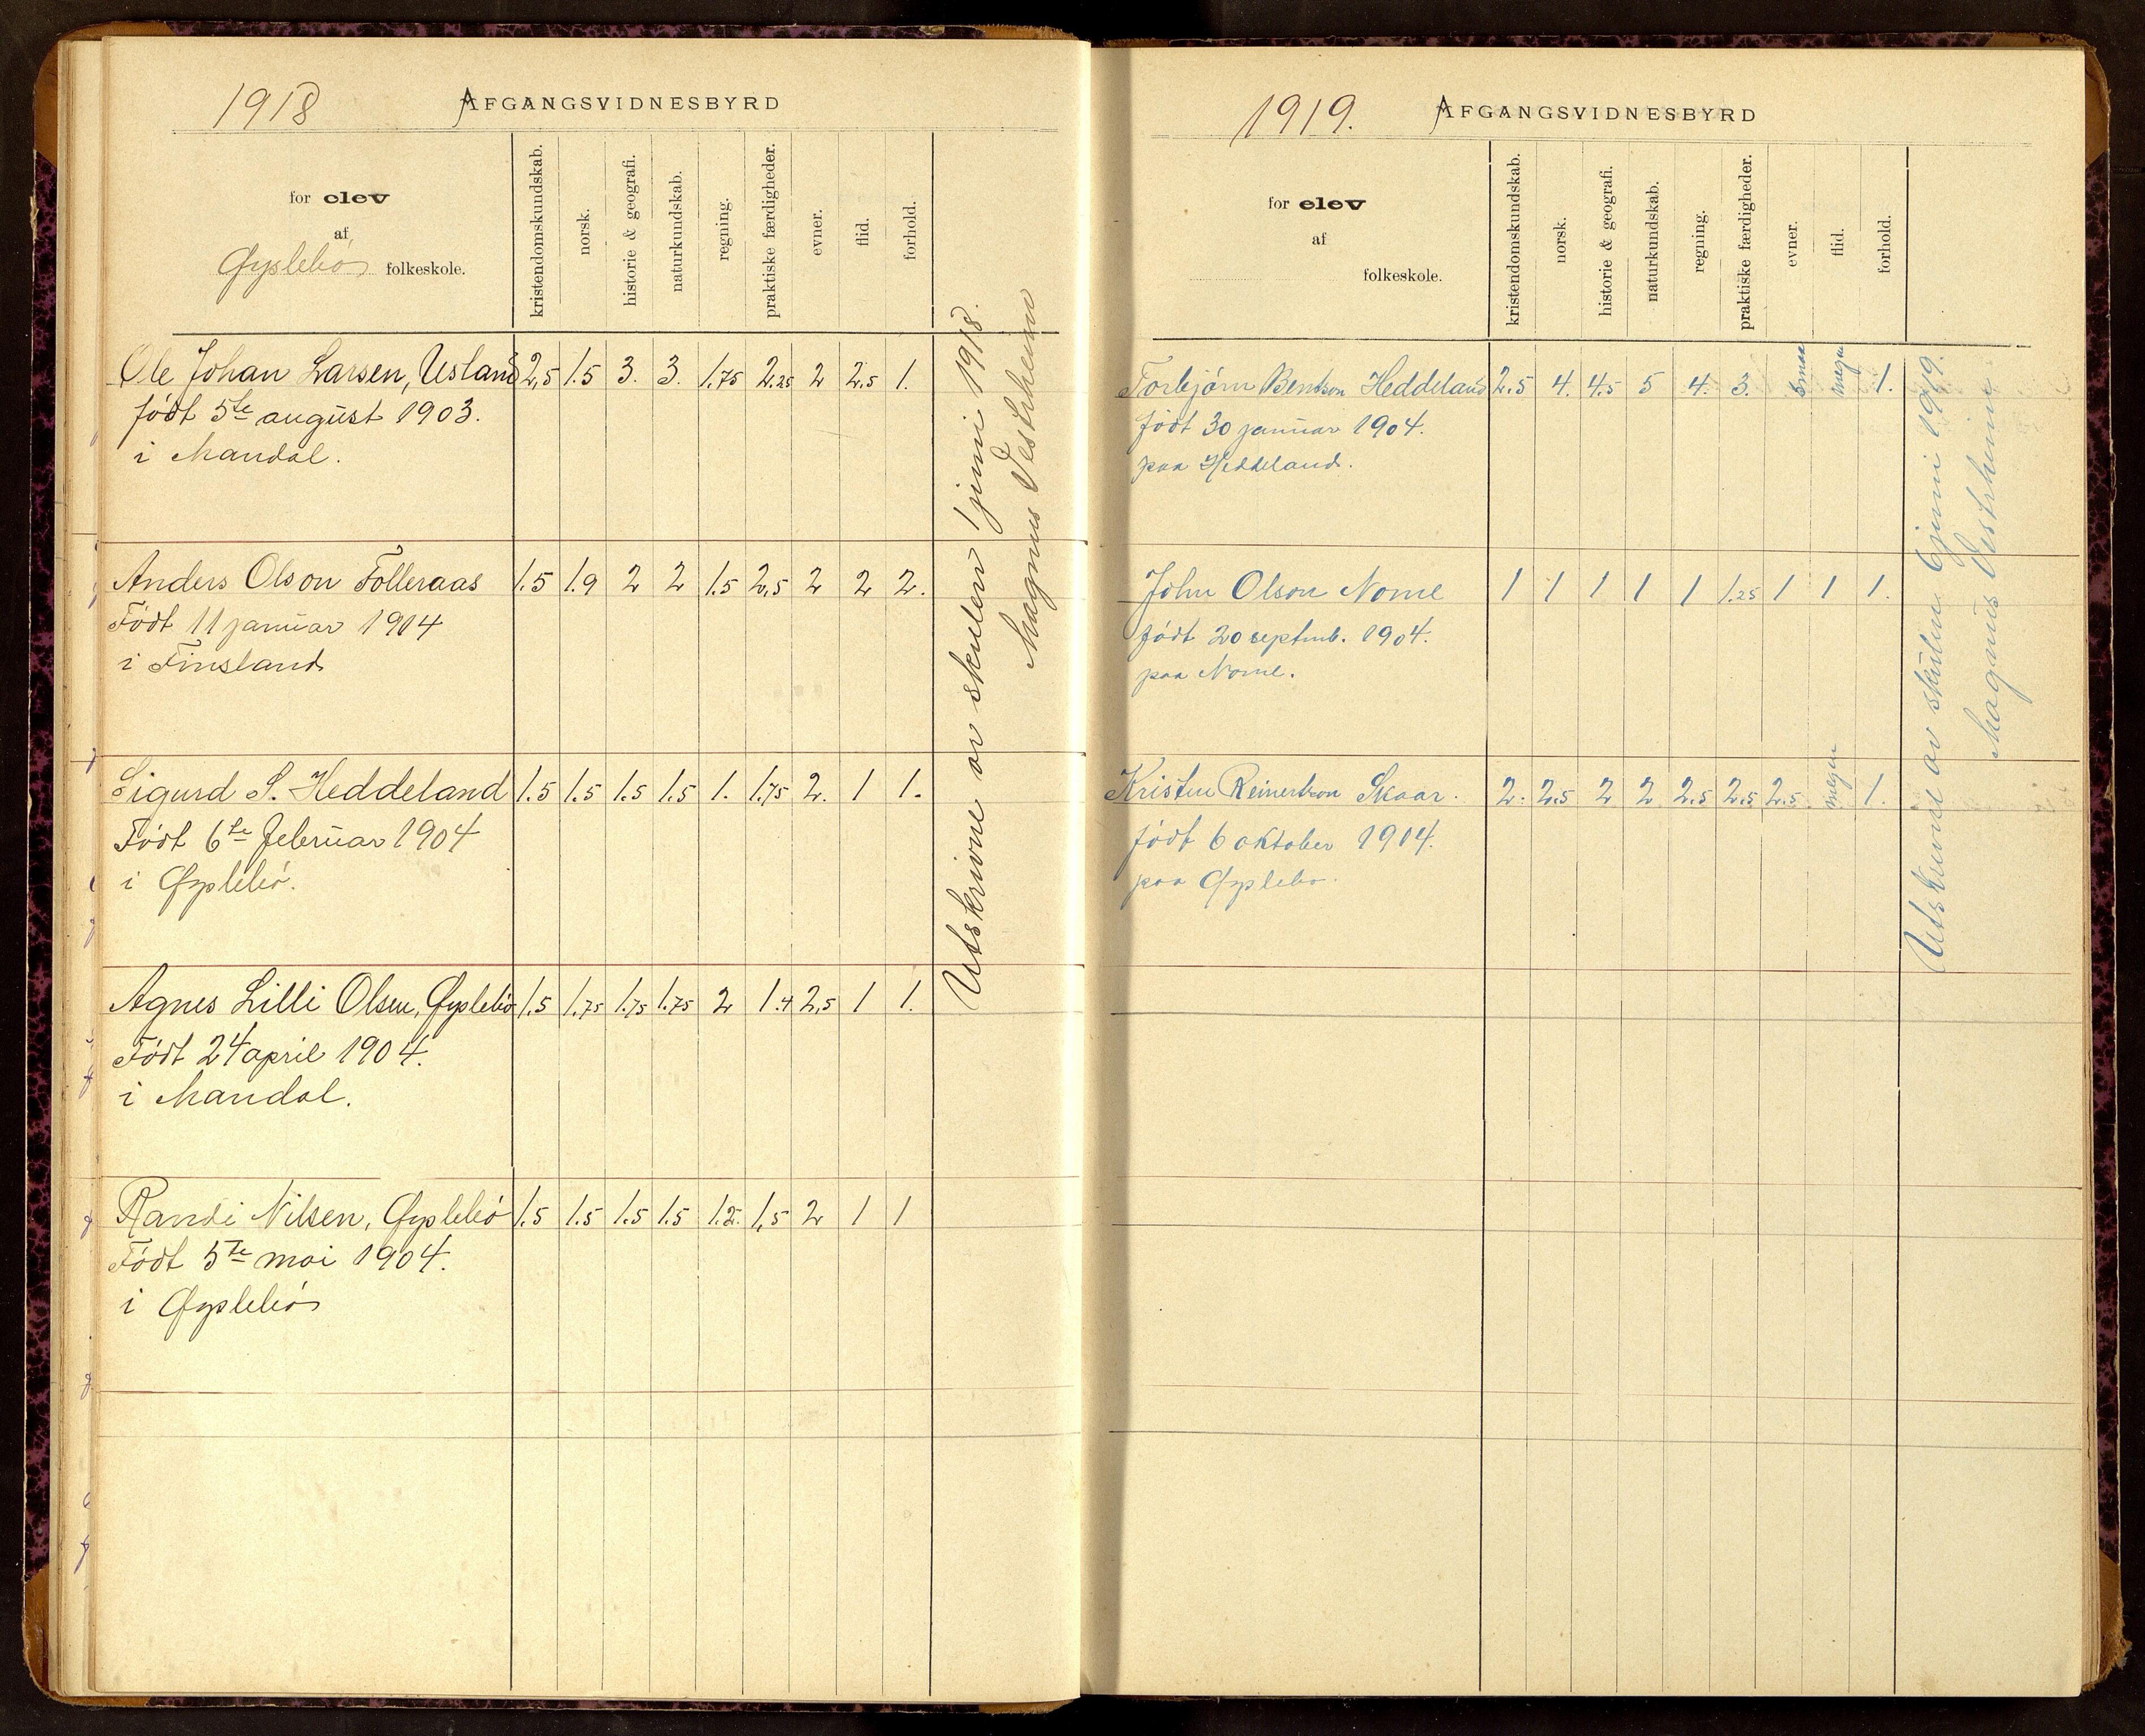 1918
AFGANGSVIDNESBYRD
for elev
af
Øyslebö folkeskole.
kristendomskundskab.
norsk.
historie & geografi.
naturkundskab.
regning.
praktiske færdigheder.
evner.
flid.
forhold.
Ole Johan Larsen, Usland 2,5 1.5 3. 3. 1.75 2.25 2 2.5 1.
født 5te august 1903.
i Mandal.
Anders Olson Folleraas 1.5 1.9 2 2 1.5 2,5 2 2 2.
Født 11 januar 1904
i Finsland
Sigurd S. Heddeland 1.5 1.5 1.5 1.5 1. 1.75 2. 1 1.
Født 6te februar 1904
i Øyslebö.
Agnes Lilli Olsen, Øyslebö 1.5 1.75 1.75 1.75 2 1.4 2,5 1 1.
Født 24 april 1904.
i Mandal.
Randi Nilsen, Øyslebö 1.5 1.5 1.5 1.5 1.2. 1,5 2 1 1
Født 5te mai 1904.
i Øyslebö
Utskrivne av skulen 1 juni 1918.
Magnus Vestrheim
1919.
AFGANGSVIDNESBYRD
for elev
af
folkeskole.
kristendomskundskab.
norsk.
historie & geografi.
naturkundskab.
regning.
praktiske færdigheder.
evner.
flid.
forhold.
Torbjörn Bentson Heddeland 2.5 4. 4.5 5 4. 3. smaa megen 1.
födt 30 januar 1904.
paa Heddeland.
John Olson Nome 1 1 1 1 1 1.25 1 1 1.
födt 20 septmb. 1904.
paa Nome.
Kristen Reinertson Skaar. 2. 2.5 2 2 2.5 2.5 2.5 megen 1.
födt 6 oktober 1904.
paa Øyslebö.
Utskrivne av skulen 6 juni 1919.
Magnus Vestrheim